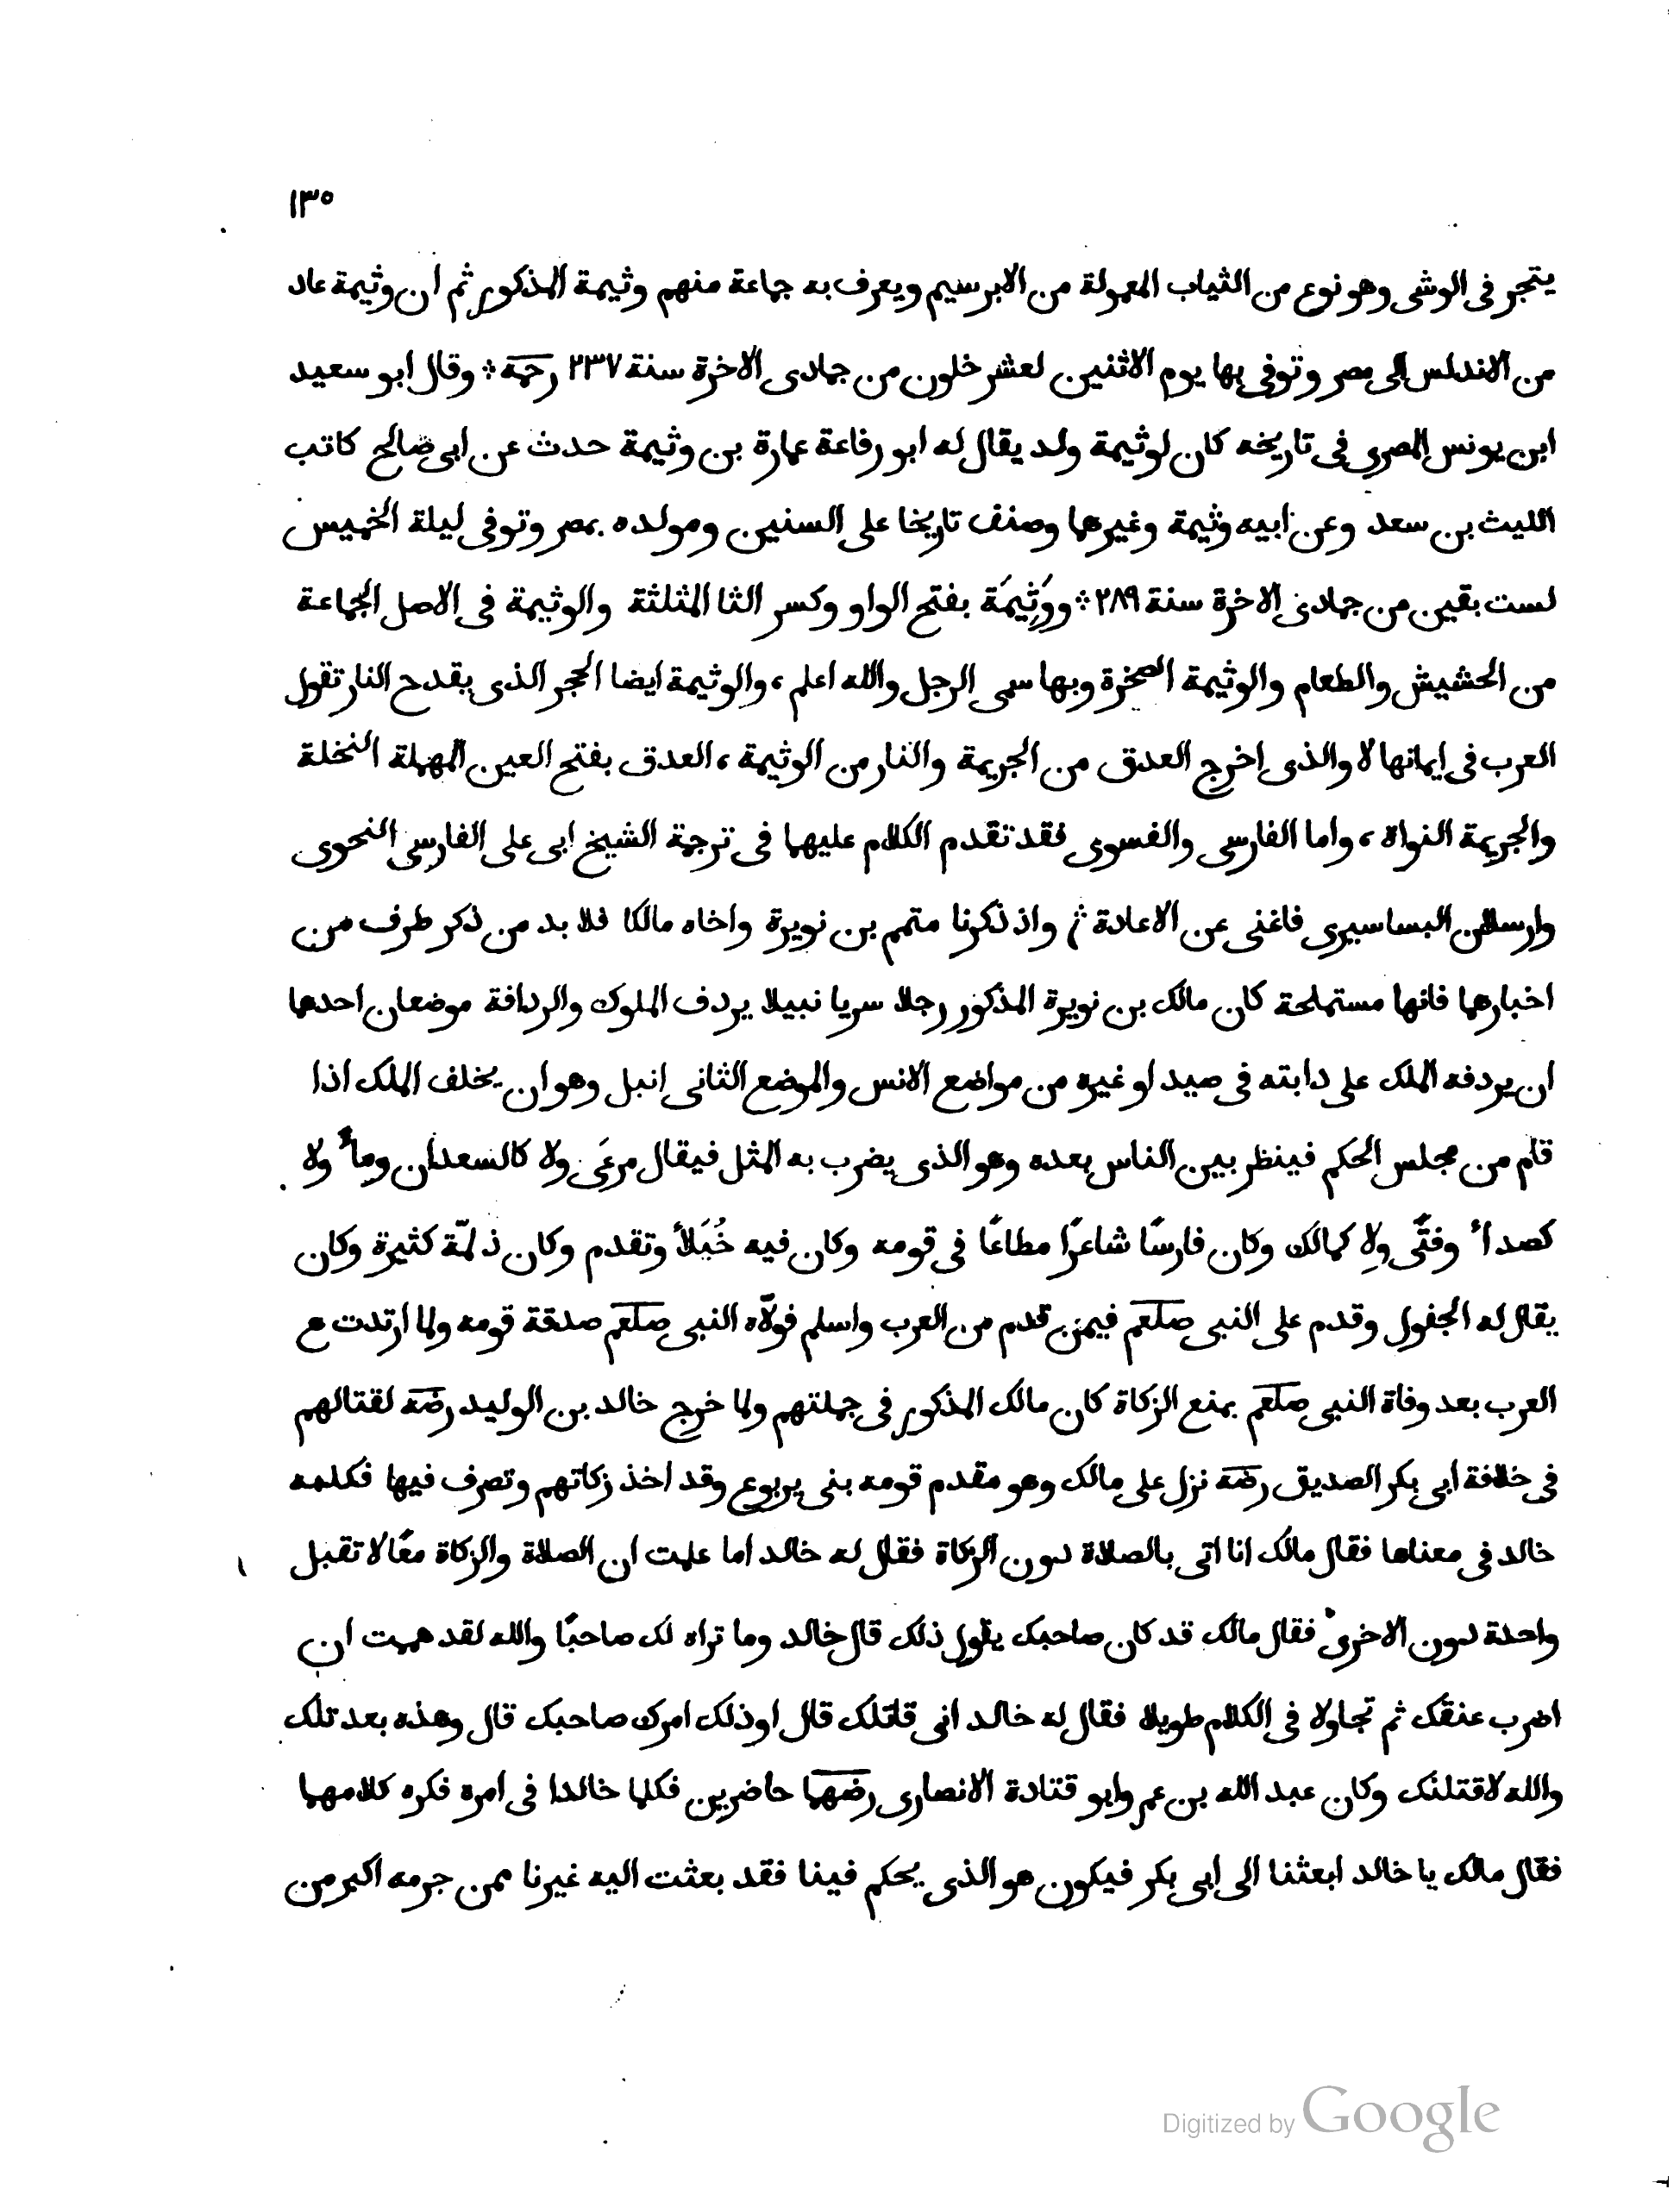 ١٣٥
يتجر فى الوشى وهو نوع من الثياب المعمولة من الابرسيم ويعرف به جماعة منهم وثيمة المذكور ثم ان وثيمة عاد
من الاندلس الى مصر وتوفى بها يوم الاثنين لعشر خلون من جمادى الاخرة سنة ٢٣٧ رحمه ۞ وقال ابو سعيد
ابن يونس المصرى فى تاريخه كان لوثيمة ولد يقال له ابو رفاعة عمارة بن وثيمة حدث عن ابى صالح كاتب
الليث بن سعد وعن ابيه وثيمة وغيرهما وصنف تاريخا على السنين ومولده بمصر وتوفى ليلة الخميس
لست بقين من جمادى الاخرة سنة ٢٨٩ ۞ ووَثِيمَة بفتح الواو وكسر الثا المثلثة والوثيمة فى الاصل الجماعة
من الحشيش والطعام والوثيمة الصخرة وبها سمى الرجل والله اعلم ، والوثيمة ايضا الحجر الذى يقدح النار تقول
العرب فى ايمانها لا والذى اخرج العدق من الجريمة والنار من الوثيمة ، العدق بفتح العين المهملة النخلة
والجريمة النواة ، واما الفارسى والفسوى فقد تقدم الكلام عليهما فى ترجمة الشيخ ابى على الفارسى النحوى
وارسلان البساسيرى فاغنى عن الاعادة ۞ واذ ذكرنا متمم بن نويرة واخاه مالكا فلا بد من ذكر طرف من
اخبارهما فانها مستملحة كان مالك بن نويرة المذكور رجلا سريا نبيلا يردف الملوك والردافة موضعان احدهما
ان يردفه الملك على دابته فى صيد او غيره من مواضع الانس والموضع الثانى انبل وهو ان يخلف الملك اذا
قام من مجلس الحكم فينظر بين الناس بعده وهو الذى يضرب به المثل فيقال مرعَى ولا كالسعدان وماٌء ولا
كصدأء وفتًى ولا كمالك وكان فارسًا شاعرًا مطاعًا فى قومه وكان فيه خُيَلأ وتقدم وكان ذ لمّة كثيرة وكان
يقال له الجفول وقدم على النبى صلعم فيمن قدم من العرب واسلم فولّاه النبى صلعم صدقة قومه ولما ارتدت ع
العرب بعد وفاة النبى صلعم بمنع الزكاة كان مالك المذكور فى جملتهم ولما خرج خالد بن الوليد رضه لقتالهم
فى خلافة ابى بكر الصديق رضه نزل على مالك وهو مقدم قومه بنى يربوع وقد اخذ زكاتهم وتصرف فيها فكلمه
خالد فى معناها فقال مالك انا اتى بالصلاة دون الزكاة فقال له خالد اما علمت ان الصلاة والزكاة معًا لا تقبل
واحدة دون الاخرى فقال مالك قد كان صاحبك يقول ذلك قال خالد وما تراه لك صاحبًا والله لقد هممت ان
اضرب عنقك ثم تجاولا فى الكلام طويلا فقال له خالد انى قاتلك قال اوذلك امرك صاحبك قال وهذه بعد تلك
والله لاقتلنك وكان عبد الله بن عمر وابو قتادة الانصارى رضهما حاضرين فكلما خالدا فى امره فكره كلامهما
فقال مالك يا خالد ابعثنا الى ابى بكر فيكون هو الذى يحكم فينا فقد بعثت اليه غيرنا ممن جرمه اكبر من
Digitized by Google